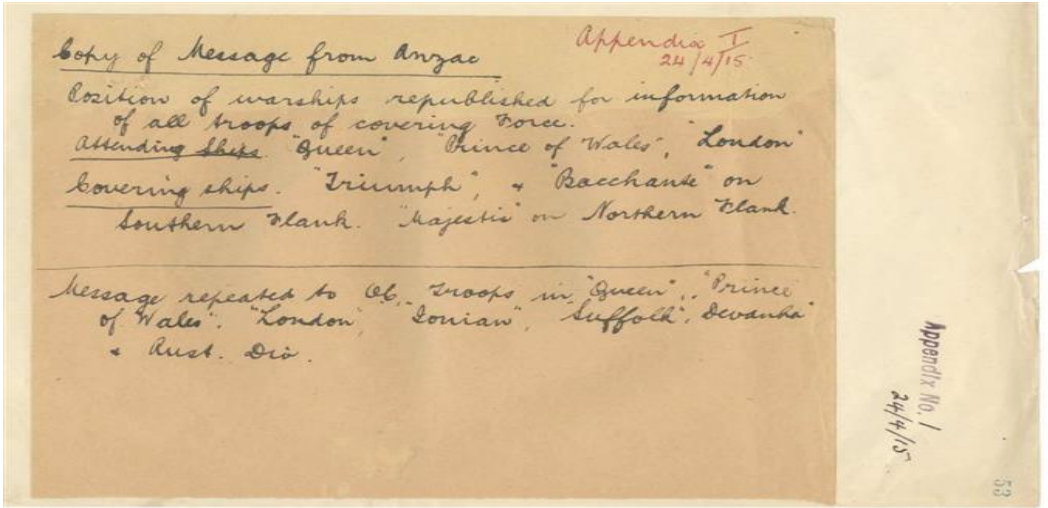 Appendix I
24/4/15
Copy of Message from Anzac
Position of warships republished for information
of all troops of covering Force.
Attending Ships. "Queen", "Prince of Wales", "London"
Covering ships. "Triumph", & "Bacchante" on
Southern Flank. "Majestic" on Northern Flank.
Message repeated to OC. Troops in "Queen", "Prince
of Wales", "London", "Ionian", "Suffolk", Devanha"
& Aust. Div.
Appendix No. 1
24/4/15
53